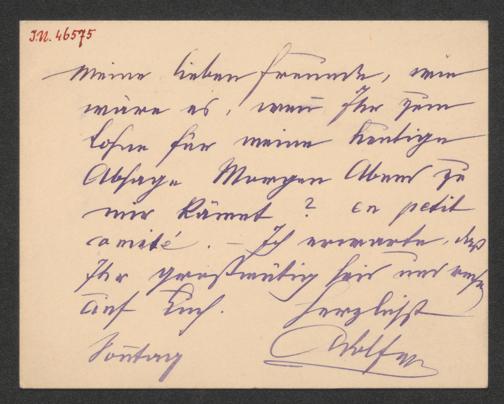 J.N. 46575
Meine lieben Freunde, wie
wäre es, wen̄ Ihr zum
Lohne für meine heutige
Absage Morgen Abend zu
mir kämet? en petit
comité. – Ich erwarte, daß
Ihr großmütig seid und rechne
auf Euch. Herzlichst
Son̄tag